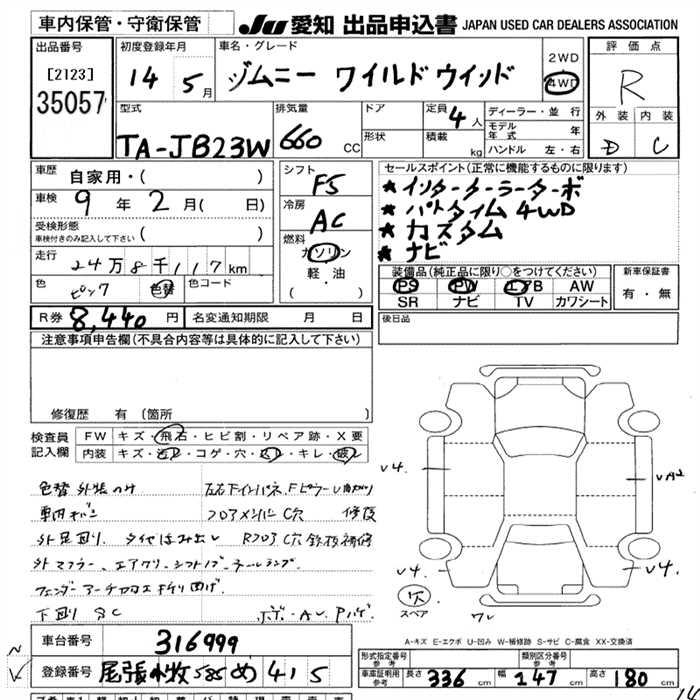 車内保管・守衛保管
JU 愛知 出品申込書 JAPAN USED CAR DEALERS ASSOCIATION
出品番号
[2123]
35057
初度登録年月
14 5月
車名・グレード
ジムニー ワイルドウインド
2WD
4WD
評価点
R
外装 内装
D C
型式
TA-JB23W
排気量
660 CC
ドア
形状
定員 4人
積載 kg
ディーラー・並行
モデル年式 年
ハンドル 左・右
車歴 自家用・( )
車検 9年 2月 ( 日)
受検形態
車検付きのみ記入して下さい ( )
走行 24万8千117km
色 ピンク 色替 色コード
シフト
F5
冷房
AC
燃料
ガソリン
軽・油
( )
セールスポイント(正常に機能するものに限ります)
★インタークーラーターボ
★パートタイム4WD
★カスタム
★ナビ
装備品(純正品に限り○をつけてください)
PS PW エアB AW
SR ナビ TV カワシート
新車保証書
有・無
R券 8,440円
名変通知期限 月 日
後日品
注意事項申告欄(不具合内容等は具体的に記入して下さい)
修復歴 有 (箇所 )
検査員記入欄
FW キズ・飛石・ヒビ割・リペア跡・X要
内装 キズ・ ・コゲ・穴・ ・キレ・破レ
色替 外装のみ
車内キズ
フロアメンバーC穴 修復
外足廻り、タイヤはみ出し RフロアC穴 鈑板補修
外マフラー、エアクリ
フェンダーアーチ 折り曲げ
下廻りSC
V4.
VA2
V4.
V4.
穴
スペア
ワレ
A-キズ E-エクボ U-凹み W-補修跡 S-サビ C-腐食 XX-交換済
車台番号 316999
登録番号 尾張小牧 585 め 415
形式指定番号 参考
類別区分番号 参考
車庫証明用 参考
長さ 336 cm 幅 147 cm 高さ 180 cm